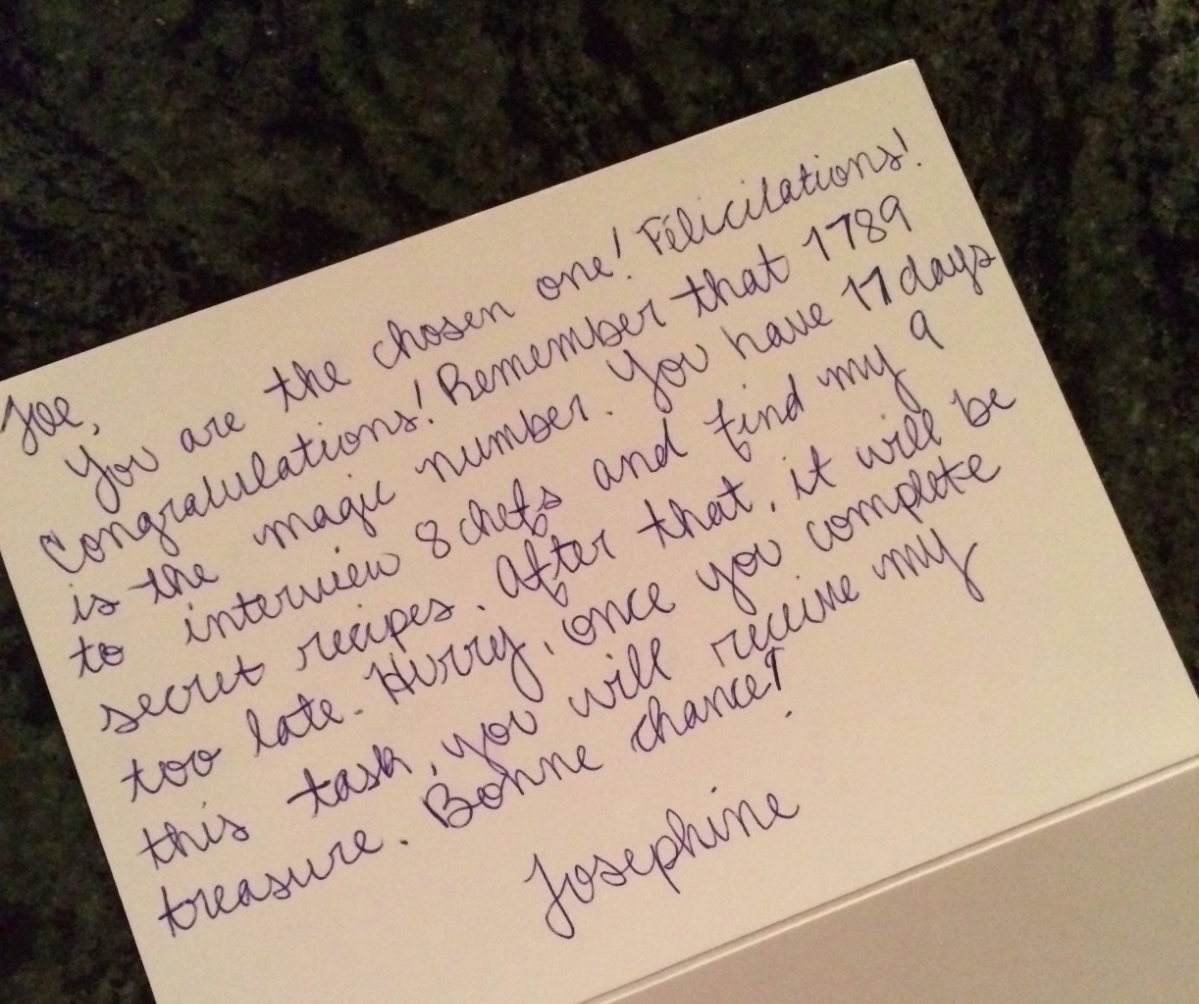 Joe,
You are the chosen one! Félicitations!
Congratulations! Remember that 1789
is the magic number. You have 17 days
to interview 8 chefs and find my 9
secret recipes. After that, it will be
too late. Hurry, once you complete
this task, you will receive my
treasure. Bonne chance!
Josephine